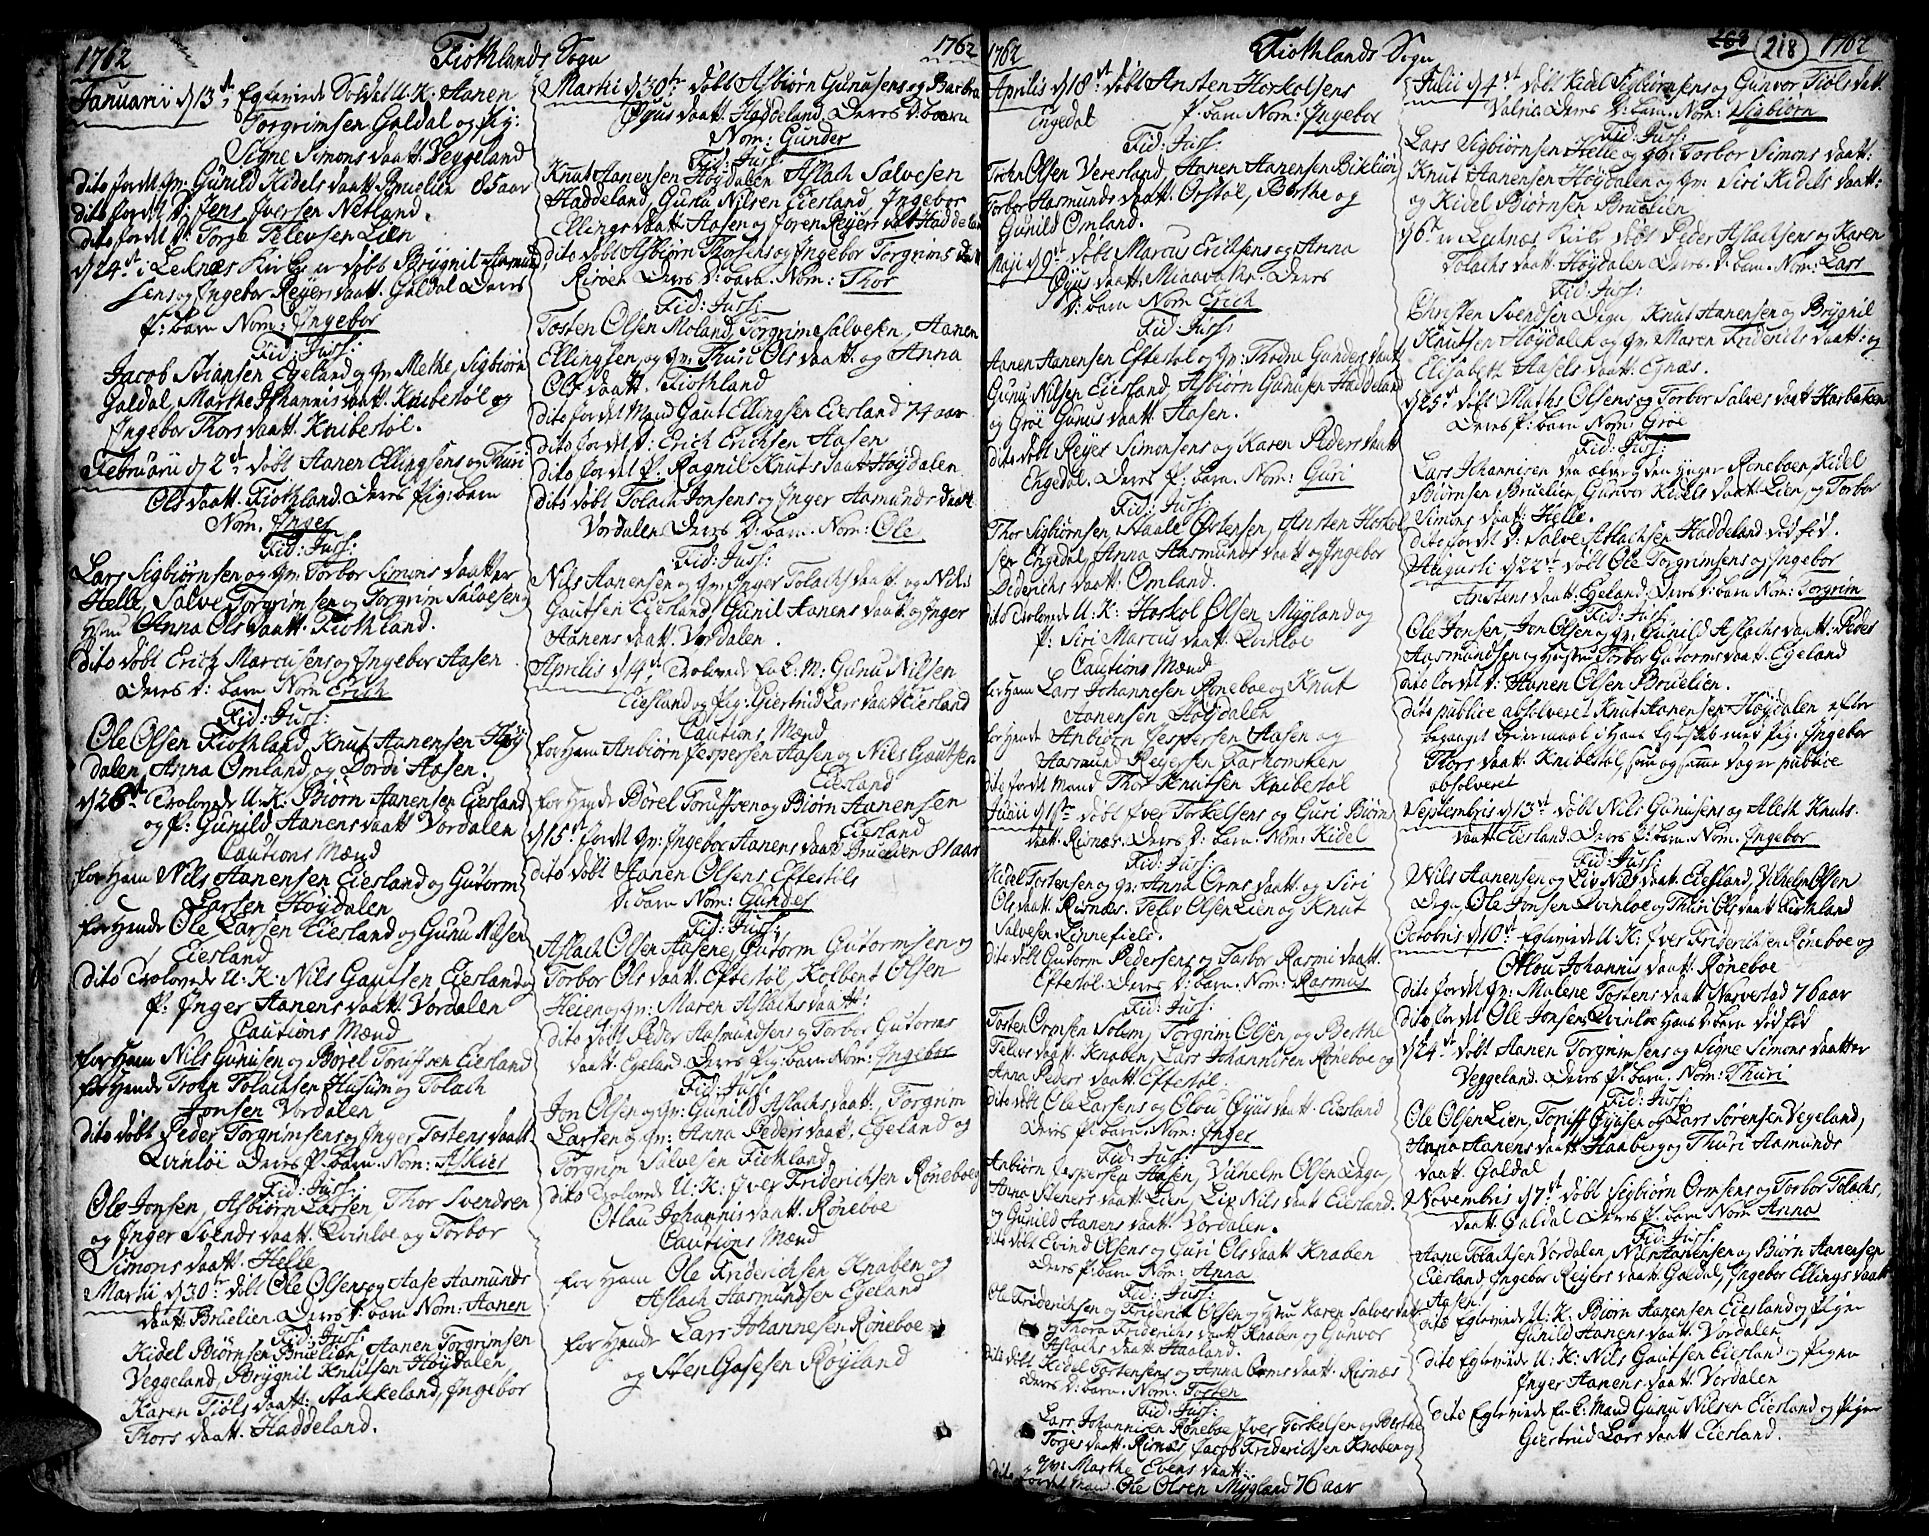 1762 Fiothlands Sogn 1762
Januarii d 13de Egteviede Soldat U: K: Aanen
Torgrimsen Galdal og Pig:
Signe Simons daatt: Veggeland
dito fordet Qv: Gunild Kidels daatt: Bruelien 85 aar
dito fordet D: Jens Iversen Netland.
dito fordet D: Torje Televsen Lien
d 24de i Leknæs Kirke er døbt Brygnil Aamund
sens og Ingebor Reyers daatt: Galdal Deres
P: barn Nom: Ingebor
Fid: Juss:
Jacob Stiansen Egeland og Qv: Mette, Sigbiørn
Galdal, Marthe Johannis daatt: Knibestøl og
Ingebor Thors daatt: Knibestøl.
Februarii d 2de døbt Aanen Ellingsens og Thuri
Ols daatt: Fiothland Deres Pig: barn
Nom. Inger
Fid: Juss:
Lars Sigbiørnsen og Qv: Torbor Simons daatter
Helle, Salve Torgrimsen og Torgrim Salvesen og
Anna Ols daatt: Fiothland.
dito døbt Erich Marcusens og Ingebor Aasen
Deres D: barn Nom Erich
Fid: Juss:
Ole Olsen Fiothland, Knut Aanensen Høy
dalen, Anna Omland og Dordi Aasen.
d 28de Trolovede U: K: Biørn Aanensen Eiesland
og P: Gunild Aanens daatt Vordalen
Cautions Mænd
for Ham Nils Aanensen Eiesland og Gutorm
Larsen Høydalen
for Hende Ole Larsen Eiesland og Gunu Nilsen
Eiesland
dito Trolovede U: K: Nils Gautsen Eiesland og
P: Inger Aanens daatt: Vordalen
Cautions Mænd
for Ham Nils Gunusen og Borel Toruffsen Eiesland
for Hende Trohn Tolachsen Husum og Tolach
Jonsen Vordalen
dito døbt Peder Torgrimsens og Inger Tostens daatt
Lvinløi Deres P: barn Nom: Askier
Fid: Juss:
Ole Jonsen, Asbiørn Larsen Thor Svendsen
og Inger Svends daatt: Lvinløe og Torbor
Simons daatt: Helle
Martii d 30te døbt Ole Olsens og Aase Aamunds
daatt: Bruelien Deres D: barn Nom: Aanen
Fid: Juss:
Kidel Biørnsen Bruelien, Aanen Torgrimsen
Veggeland, Brygnil Knutsen Høydalen,
Karen Tiøls daatt: Stakkeland, Ingebor
Thors daatt: Haddeland.
Martii d 30te døbt Asbiørn Gunusens og Barbra
Øyus daatt: Haddeland Deres D: barn
Nom: Gunder
Fid: Juss:
Knut Aanensen Høydalen Aslach Salvesen
Haddeland, Gunu Nilsen Eiesland, Ingebor
Ellings daatt: Aasen og Joren Reyers daatt Haddeland
dito døbt Asbiørn Thorsens og Ingebor Torgrims daatt
Risøen Deres D: barn Nom: Thor
Fid: Juss:
Tosten Olsen Moland, Torgrim Salvesen, Aanen
Ellingsen og Qv: Thuri Ols daatt: og Anna
Ols daatt. Fiothland
dito fordet Mand Gaut Ellingsen Eiesland 74 aar
dito fordet D: Erich Erichsen Aasen
dito fordet P: Ragnil Knuts daatt Høydalen
dito døbt Tolach Jonsens og Inger Aamunds daatt
Vordalen Deres D: barn Nom: Ole
Fid: Juss:
Nils Aanensen og Qv: Inger Tolachs daatt: og Nils
Gautsen Eiesland, Gunil Aanens daatt og Inger
Aanens daatt: Vordalen.
Aprilis d 14de Trolovede E: M: Gunu Nilsen
Eiesland og Pig: Giertrud Lars daatt Eiesland
Cautions Mænd
for Ham Anbiørn Jespersen Aasen og Nils Gautsen
Eiesland
for Hende Børel Toruffsen og Biørn Aanensen
Eiesland
d 15de fordet Qv: Ingebor Aanens daatt Bruelien 81 aar
dito døbt Aanen Olsens Eftestøls
D: barn Nom: Gunder
Fid: Juss:
Aslach Olsen Aasene, Gutorm Gutormsen og
Torbor Ols daatt: Eftestøl, Kolbent Olsen
Heien og Qv: Maren Aslachs daatt:
dito døbt Peder Aasmundsens og Torbor Gutorms
daatt: Egeland Deres Pig: barn Nom: Ingebor
Fid: Juss:
Jon Olsen og Qv: Gunild Aslachs daatt:, Torgrim
Larsen og Qv: Anna Peders daatt. Egeland og
Torgrim Salvesen Fiothland
dito Trolovede U: K: Iver Friderichsen Røneboe og
Otlau Johannis daatt: Røneboe
Cautions Mænd
for Ham Ole Friderichsen Knaben og
Aslach Aasmundsen Egeland
for Hende Lars Johannesen Røneboe
og Sten Gasesen Røyland
1762 Fiothlands Sogn 218 1762
Aprilis d 18de døbt Ansten Horkolsens
Engedal P: barn Nom: Ingebor
Fid: Juss:
Trohn Olsen Veresland, Aanen Aanensen Biklion,
Torbor Aasmunds daatt: Orstøl, Berthe og
Gunild Omland.
Maji d 9de døbt Marcus Erichsens og Anna
Øyus daatt: Deres
D: barn Nom Erich
Fid: Juss:
Aanen Aanensen Eftestøl og Qv: Thodne Gunders daatt
Gunu Nilsen Eiesland, Asbiørn Gunusen Haddeland
og Groe Gunus daatt: Aasen.
dito døbt Reyer Simonsens og Karen Peders daatt
Engedal. Deres P: barn. Nom: Guri
Fid: Juss:
Thor Sigbiørnsen, Staale Østensen, Ansten Horkol
sen Engedal, Anna Aasmunds daatt og Ingebor
Diderichs daatt: Omland.
dito Trolovede U: K: Horkol Olsen Mygland og
P: Siri Marcus daatt: Lvinløe
Cautions Mænd
for Ham Lars Johannesen Røneboe og Knut
Aanensen Høydalen
for Hende Anbiørn Jespersen Aasen og
Aasmund Reyersen Farhomsken
dito fordt Mand Thor Knutsen Knibestøl
Junii d 1ste døbt Iver Torkelsens og Guri Biørns
daatt: Risnæs. Deres D: barn. Nom: Kidel
Fid: Juss:
Kidel Tostensen og Qv: Anna Orms daatt: og Siri
Ols daatt: Risnæs. Telev Olsen Lien og Knut
Salvesen Linnefield.
dito døbt Gutorm Pedersens og Torbor Rasmi daatt:
Eftestøl. Deres D: barn. Nom: Rasmus
Fid: Juss:
Tosten Ormsen Solem, Torgrim Olsen, og Berthe
Televs daatt: Knaben, Lars Johannisen Røneboe og
Anna Peders daatt: Eftestøl.
dito døbt Ole Larsens og Olou Øyus daatt: Eiesland
Deres P: barn. Nom: Inger
Fid: Juss:
Anbiørn Jespersen Aasen, Vilhelm Olsen Degn,
Anna Steners daatt: Lien, Liv Nils daatt Eiesland.
og Gunild Aanens daatt: Vordalen.
dito døbt Evind Olsens og Guri Ols daatt: Knaben
Deres P: barn Nom: Anna
Fid: Juss:
Ole Friderichsen og Friderich Olsen og Hstru Karen Salves daatt
og Thora Friderichs daatt Knaben og Gunvor
Aslachs daatt: Haaland.
dito døbt Kidel Tostensens og Anna Orms daatt: Risnæs
Deres D: barn. Nom: Tosten
Fid: Juss:
Lars Johannisen Røneboe Iver Torkelsen og Berthe
Torjes daatt: Risnæs Jacob Friderichsen Knaben og
Qv: Marthe Evens daatt:
dito fordet Mand Ole Olsen Mygland 76 aar
Julii d 4de døbt Kidel Sigbiørnsens og Gunvor Tiøls daatt:
Valria Deres D: barn. Nom: Sigbiørn
Fid: Juss:
Lars Sigbiørnsen Helle og Qv: Torbor Simons daatt:
Knut Aanensen Høydalen og Qv: Siri Kidels daatt:
og Kidel Biørnsen Bruelien
d 6te er Leknæs Kirke døbt Peder Aslachsens og Karen
Tolachs daatt: Høydalen Deres D: barn. Nom: Lars
Fid: Juss:
Christen Svendsen Degn, Knut Aanensen og Brygnil
Knutsen Høydalen og Qv: Maren Friderichs daatt: og
Elisabett Axels daatt: Egnæs.
d 25de døbt Maths Olsens og Torbor Salves daatt Harbaken
Deres P: barn Nom: Groe
Fid: Juss:
Lars Johannisen den ældre og den yngre Røneboe, Kidel
Biørnsen Bruelien, Gunvor Kidels daatt: Lien, og Torbor
Simons daatt: Helle.
dito fordet D: Salve Aslachsen Haddeland død fød.
Augusti d 22de døbt Ole Torgrimsens og Ingebor
Anstens daatt: Egeland, Deres D: barn Nom: Torgrim
Fid: Juss:
Ole Jonsen, Jon Olsen og Qv: Gunild Aslachs daatt: Peder
Aasmundsen og Hustru Torbor Gutorms daatt: Egeland
dito fordet D: Aanen Olsen Bruelien.
dito publice absolveret Knut Aanensen Høydalen efter
begaaet Leiermaal i Hans Egteskab med Pig: Ingebor
Thors daatt: Knibestøl, som og samme dag er publice
absolveret
Septembris d 13de døbt Nils Gunusens og Aleth Knuts
daatt: Eiesland. Deres P: barn. Nom. Ingebor
Fid: Juss:
Nils Aanensen og Liv Nils daatt: Eiesland, Vilhelm Olsen
Degn, Ole Jonsen Lvinløe og Thuri Ols daatt Fiothland
Octobris d 10de Egteviede U: K: Iver Friderichsen Røneboe og
Otlou Johannis daatt: Røneboe
dito fordet Qv: Malene Tostens daatt Narvestad 76 aar
dito fordet Ole Jonsens Lvinloe Hans D: barn død fød
d 24de døbt Aanen Torgrimsens og Signe Simons daatter
Veggeland. Deres P: barn. Nom: Thuri
Fid: Juss:
Ole Olsen Lien, Toriff Øyusen og Lars Sørensen Vegeland,
Anna Aanens daatt: Haaberg og Thuri Aamunds
daatt: Galdal
Novembris d 7de døbt Sigbiørn Ormsens og Torbor Tolachs
daatt: Galdal Deres P: barn Nom Anna
Fid: Juss:
Aane Tolachsen Vordalen, Nils Aanensen og Biørn Aanensen
Eiesland, Ingebor Reyers daatt: Galdal, Ingebor Ellings daatt
Aasen.
dito Egteviede U: K: Biørn Aanensen Eiesland og Pigen
Gunild Aanens daatt: Vordalen
dito Egteviede U: K: Nils Gautsen Eiesland og Pigen
Inger Aanens daatt: Vordalen
dito Egteviede E: Mand Gunu Nilsen Eiesland og Pigen
Giertrud Lars daatt Eiesland.